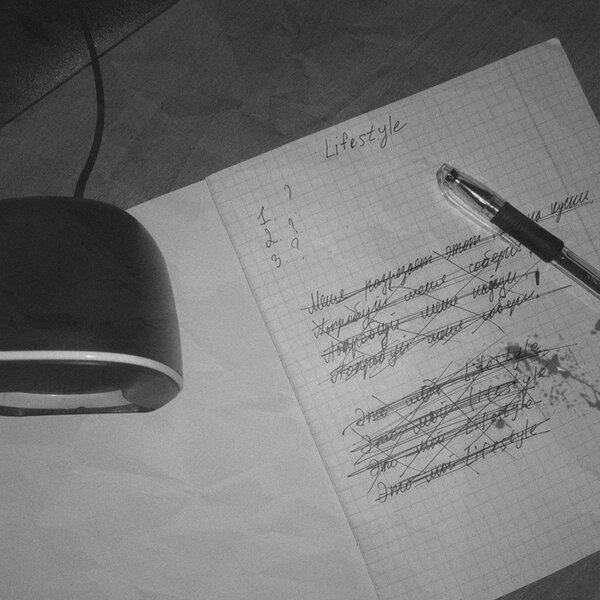 Lifestyle
1. ?
2. ?
3. ?
Меня разрезает этот на куски
Попробуй меня собери
Попробуй меня найди
Попробуй меня собери.
Это мой Lifestyle
Это мой Lifestyle
Это мой Lifestyle
Это мой Lifestyle